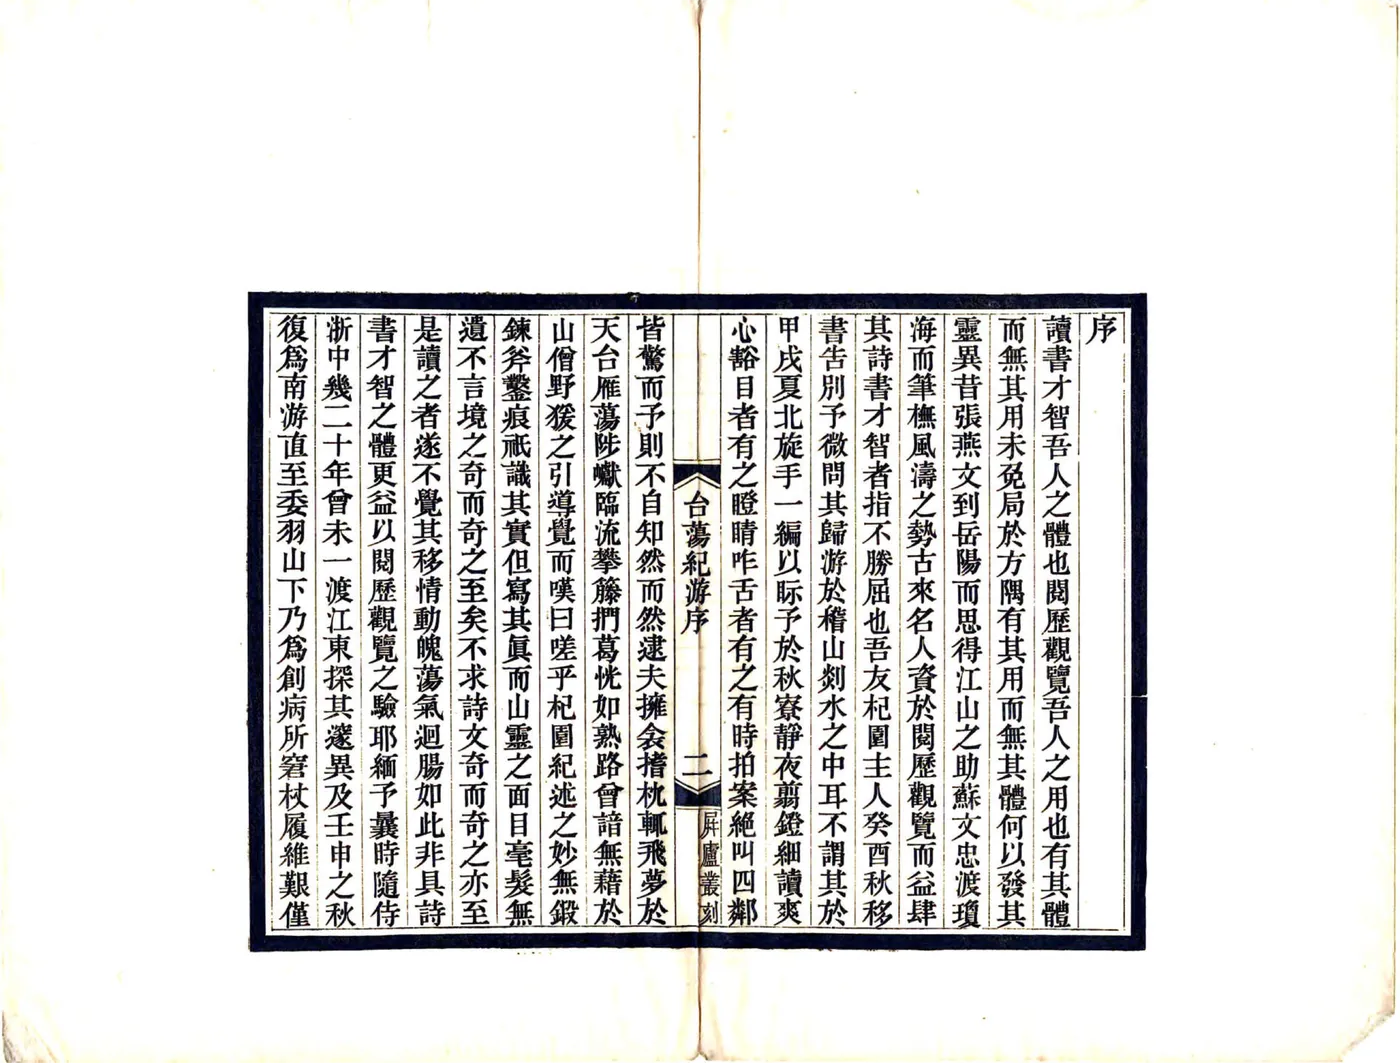 序
讀書才智吾人之體也閱歷觀覽吾人之用也有其體
而無其用未免局於方隅有其用而無其體何以發其
靈異昔張燕文到岳陽而思得江山之助蘇文忠渡瓊
海而筆橅風濤之勢古來名人資於閱歷觀覽而益肆
其詩書才智者指不勝屈也吾友杞園主人癸酉秋移
書告別予微問其歸游於稽山剡水之中耳不謂其於
甲戌夏北旋手一編以眎予於秋寮靜夜翦鐙細讀爽
心豁目者有之瞪睛咋舌者有之有時拍案絕叫四鄰
台蕩紀游序
二
屛廬叢刻
皆驚而予則不自知然而然逮夫擁衾㩦枕輒飛夢於
天台雁蕩陟巘臨流攀籐捫葛恍如熟路曾諳無藉於
山僧野猨之引導覺而嘆曰嗟乎杞園紀述之妙無鍛
鍊斧鑿痕祇識其實但寫其眞而山靈之面目毫髮無
遺不言境之奇而奇之至矣不求詩文奇而奇之亦至
是讀之者遂不覺其移情動魄蕩氣迴腸如此非具詩
書才智之體更益以閱歷觀覽之驗耶緬予曩時隨侍
浙中幾二十年曾未一渡江東探其邃異及壬申之秋
復爲南游直至委羽山下乃爲創病所窘杖履維艱僅